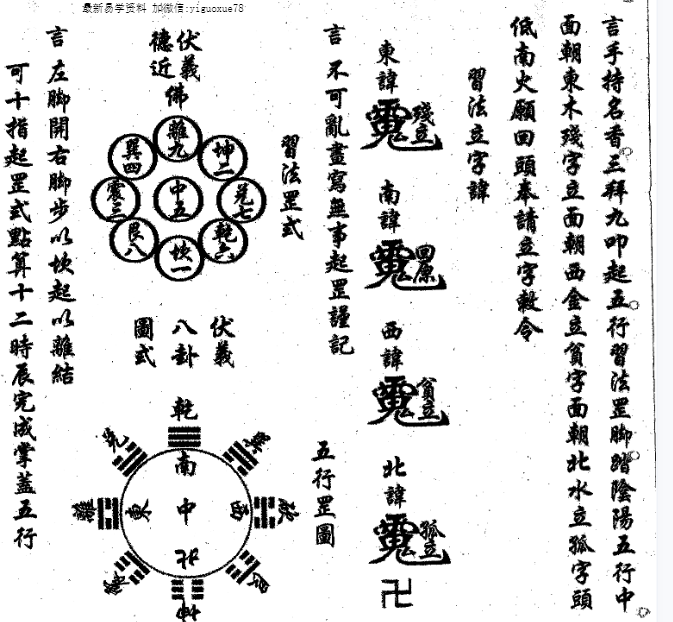 最新易学资料 加微信:yiguoxue78
言手持名香三拜九叩起五行習法罡脚踏陰陽五行中
面朝東木殘字立面朝西金立貧字面朝北水立孤字頭
低南火願回頭奉請立字敕令
習法立字諱
東諱
殘立
南諱
回原
西諱
貧立
北諱
孤立
卍
言不可亂畫寫無事起罡謹記
習法罡式
五行罡圖
伏義
德近
佛
離九
坤二
巽四
兌七
中五
震三
乾六
艮八
坎一
伏義
八卦
圖式
乾
兌
巽
南
離
東
中
西
坎
北
震
艮
坤
言左脚開右脚步以坎起以離結
可十指起罡式點算十二時辰完成掌蓋五行